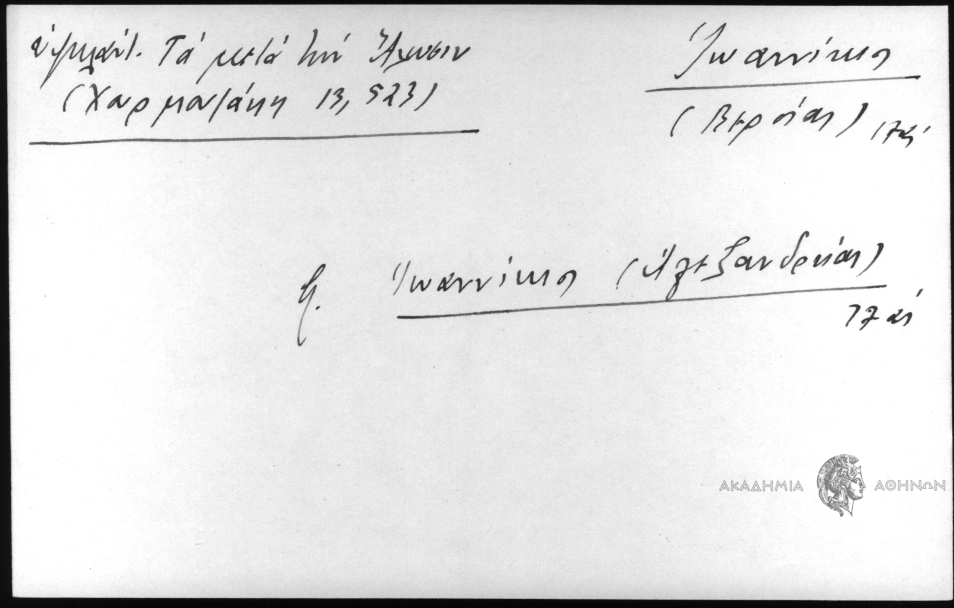 Ἀμάλτ. Τὰ μετὰ τὴν Ἅλωσιν
(Χαρμανδάκη 13, 523)
Ἰωαννίκιος
(Βεροίας) 17ος
β. Ἰωαννίκιος (Ἀλεξανδρείας)
17ος
ΑΚΑΔΗΜΙΑ ΑΘΗΝΩΝ